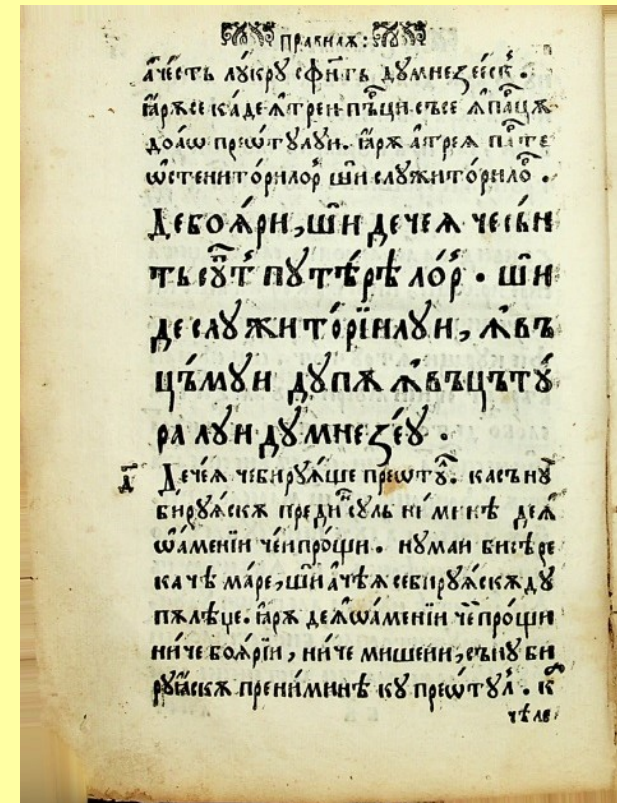 правилꙗ:
ачѣсть лꙋкрꙋ сфинть дꙋмнеꙁееск.
ꙗрꙗ се каде ꙟтреи пъци съ се ꙟпацꙗ
доаѡ преѡтꙋлꙋи. ꙗрꙗ а трея парте
ѡстениторилор ши слꙋжиторилор.
Де боꙗри, ши де чеꙗ че сънть
сꙋпт пꙋтѣрѣ лор. ши
де слꙋжиторїи лꙋи, ꙟвъ
цъмꙋи дꙋпꙗ ꙟвъцътꙋ
ра лꙋи дꙋмнеꙁеꙋ.
Де чеꙗ че бирꙋꙗще преѡтꙋл. ка сънꙋ
бирꙋꙗскꙗ пре динсꙋль нимикѣ ден
ѡаменїи чеи прощи. нꙋмаи бисѣре
ка чѣ маре, ши ачѣꙗ се бирꙋꙗскꙗ дꙋ
пꙗ лѣце. ꙗрꙗ ден ѡаменїи чеи прощи
ниче боꙗрїи, ниче мишеии, сънꙋ би
рꙋꙗскꙗ пре нимине кꙋ преѡтꙋл. к
чѣле